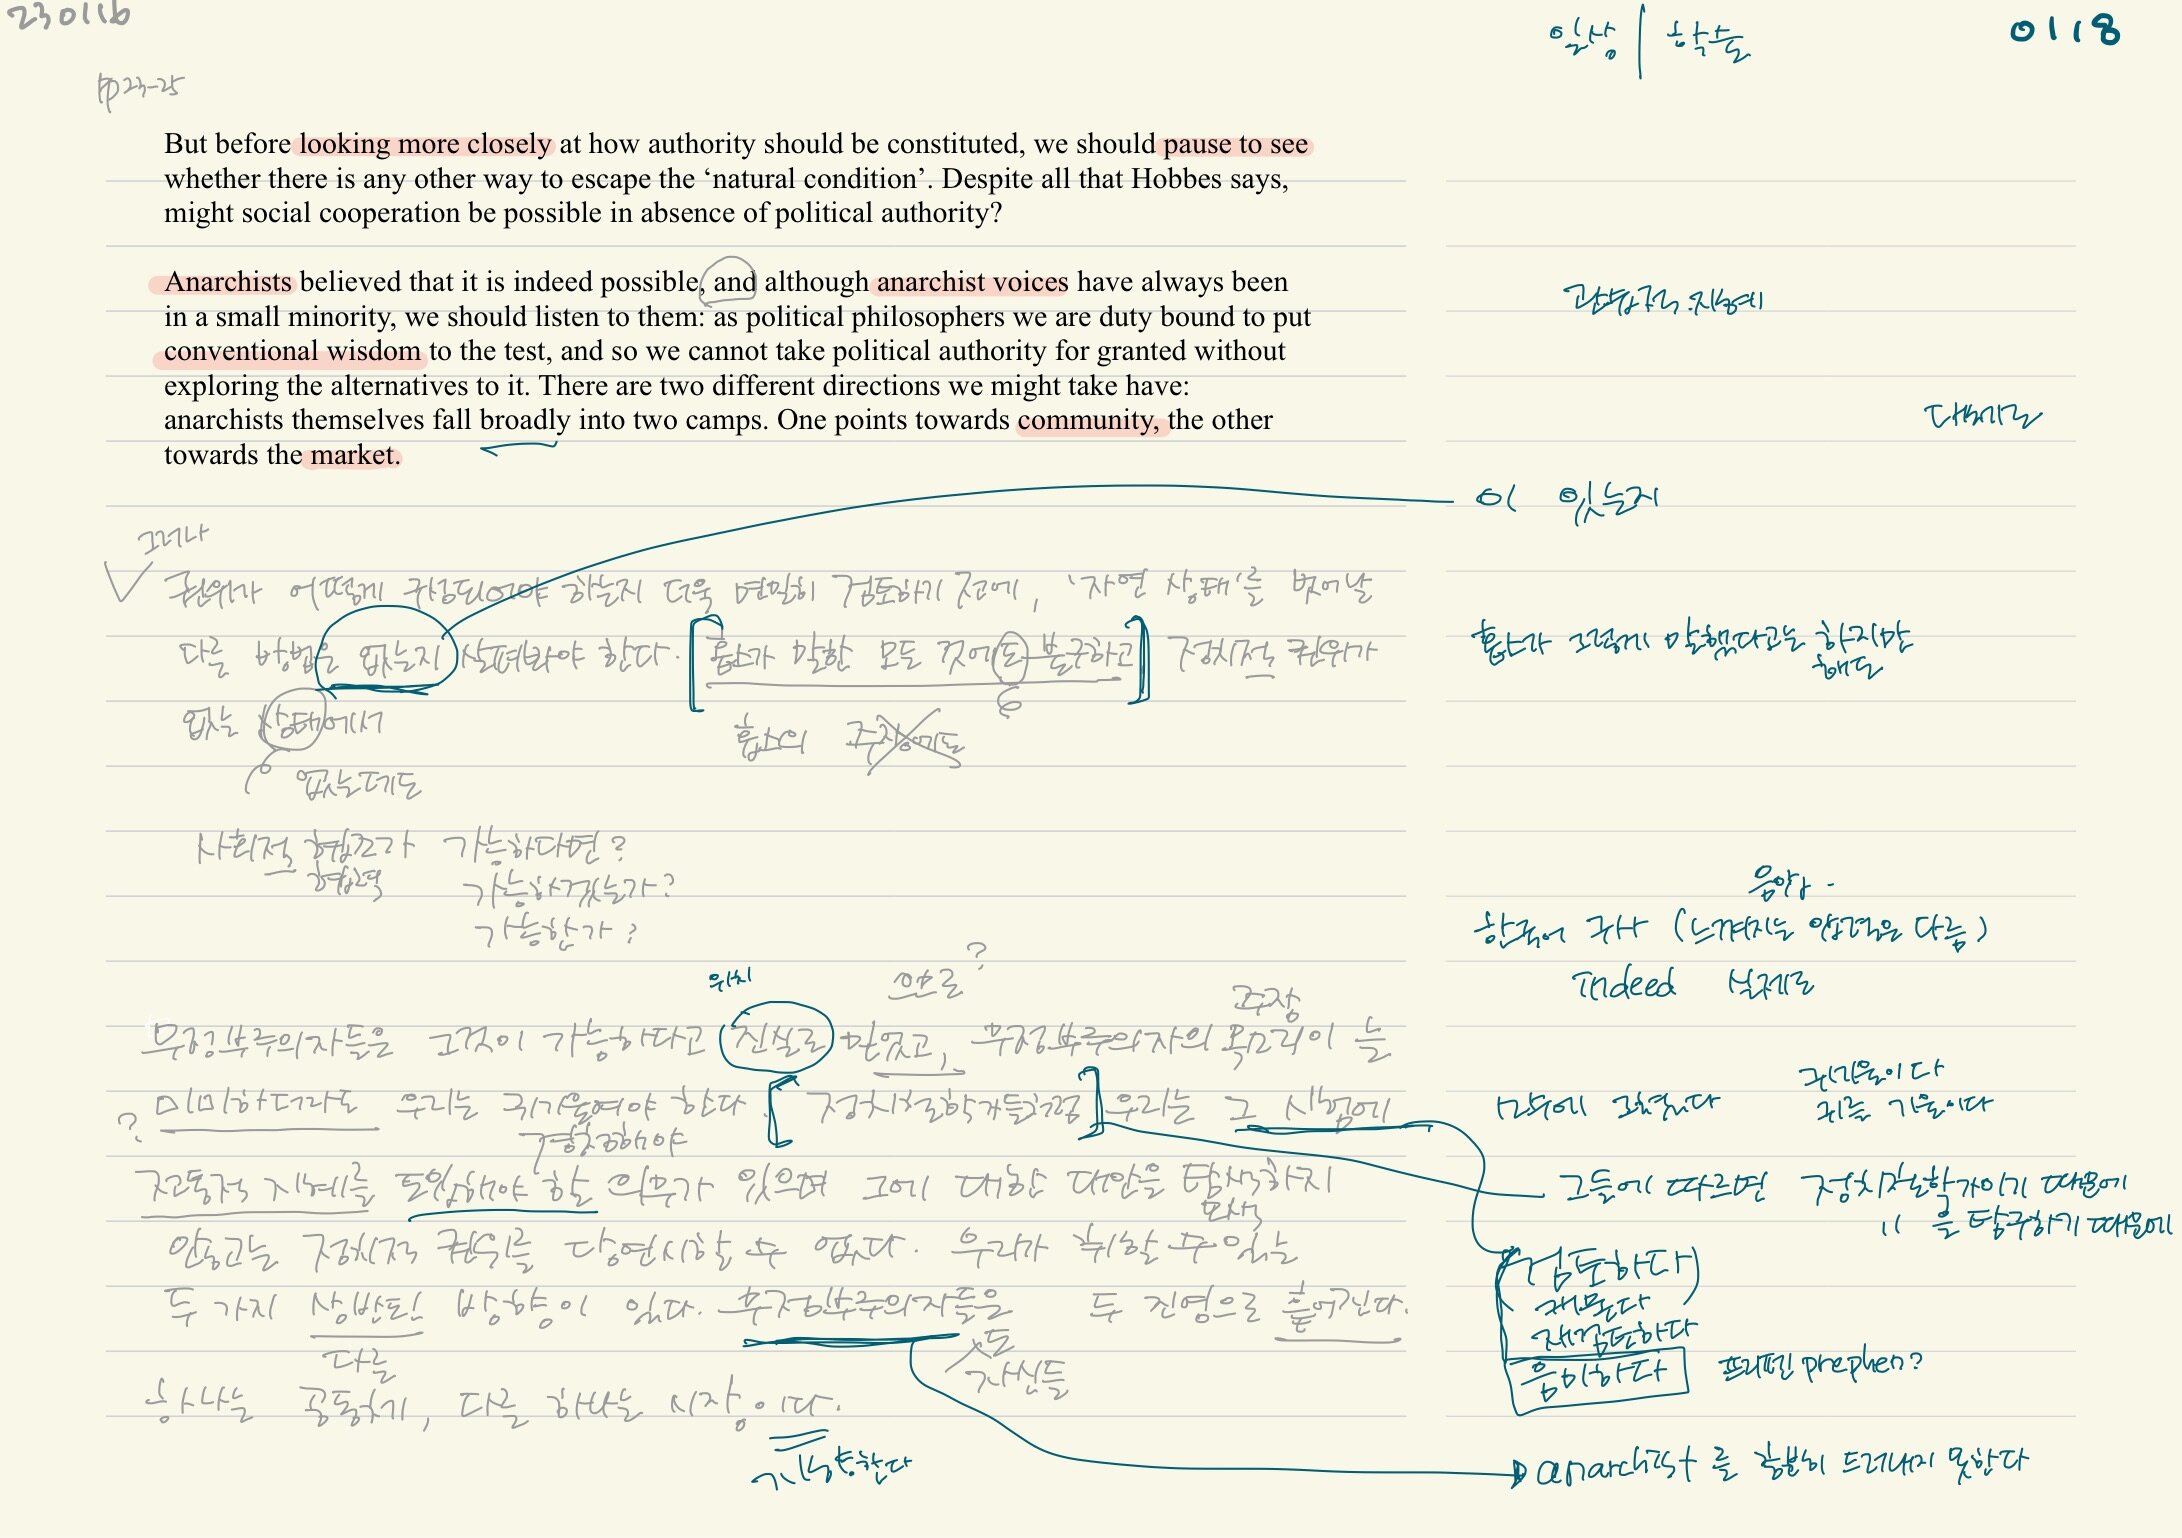 230116
일상 | 학술
0118
pp23-25
But before looking more closely at how authority should be constituted, we should pause to see
whether there is any other way to escape the ‘natural condition’. Despite all that Hobbes says,
might social cooperation be possible in absence of political authority?
Anarchists believed that it is indeed possible, and although anarchist voices have always been
in a small minority, we should listen to them: as political philosophers we are duty bound to put
conventional wisdom to the test, and so we cannot take political authority for granted without
exploring the alternatives to it. There are two different directions we might take have:
anarchists themselves fall broadly into two camps. One points towards community, the other
towards the market.
관습적 지혜
대체로
이 있는지
그러나
권위가 어떻게 구성되어야 하는지 더욱 면밀히 검토하기 전에, '자연 상태'를 벗어날
다른 방법은 없는지 살펴봐야 한다. [홉스가 말한 모든 것에도 불구하고] 정치적 권위가
홉스가 그렇게 말했다고는 하지만
해도
없는 상태에서
홉스의 주장에도
없는데도
사회적 협조가 가능하다면?
협력 가능하겠는가?
가능한가?
음압
한국어 구사 (느껴지는 압력은 다름)
Indeed 실제로
위치
으로?
주장
무정부주의자들은 그것이 가능하다고 진실로 믿었고, 무정부주의자의 목소리이 늘
? 미미하더라도 우리는 귀기울여야 한다. [정치철학자들처럼] 우리는 그 시험에
경청해야
소수에 그쳤다
귀기울이다
귀를 기울이다
전통적 지혜를 도입해야 할 의무가 있으며 그에 대한 대안을 탐색하지
모색
그들에 따르면 정치철학가이기 때문에
" 을 탐구하기 때문에
않고는 정치적 권위를 당연시할 수 없다. 우리가 취할 수 있는
두 가지 상반된 방향이 있다. 무정부주의자들은 두 진영으로 흩어진다.
다른
도
자신들
(검토하다)
재묻다
재검토하다
음미하다
프리펜 prephen?
하나는 공동체, 다른 하나는 시장이다.
지향한다
anarchist를 충분히 드러내지 못한다